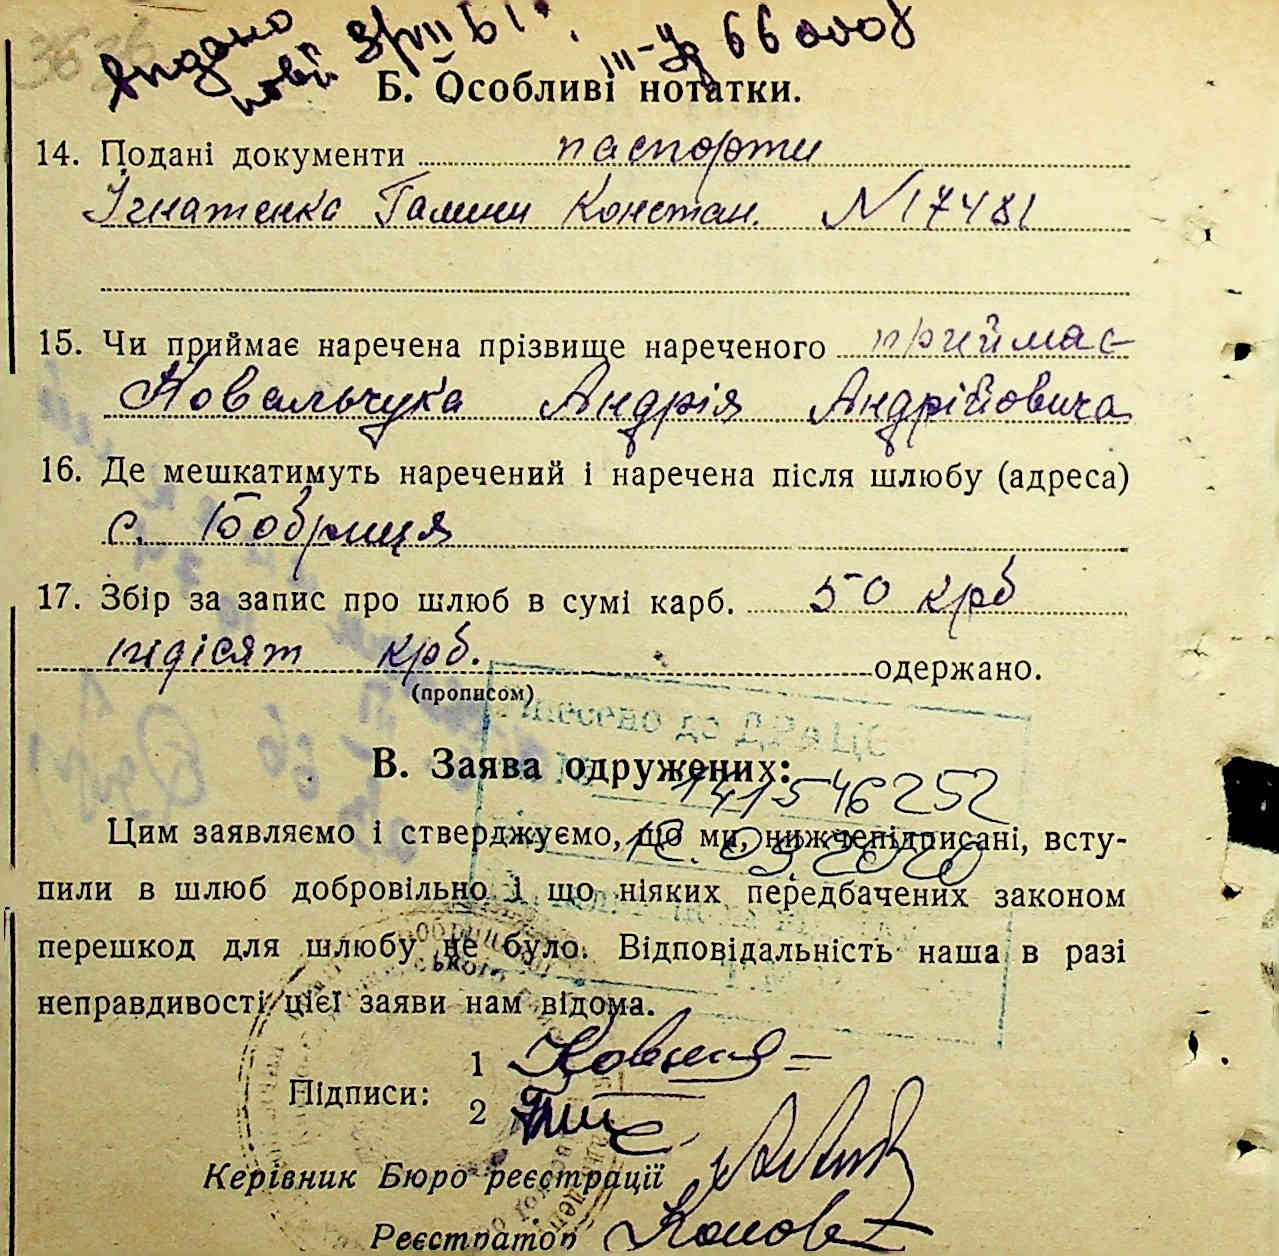 3636
видано
нові
Б. Особливі нотатки.
14. Подані документи паспорти
Ігнатенко Галини Констан. N 17481
15. Чи приймає наречена прізвище нареченого приймає
Ковальчука Андрія Андрійовича
16. Де мешкатимуть наречений і наречена після шлюбу (адреса)
с. Бобриця
17. Збір за запис про шлюб в сумі карб. 50 крб
пядісят крб. одержано.
(прописом)
Внесено до ДРАЦС
В. Заява одружених:
141546252
Цим заявляємо і стверджуємо, що ми, нижчепідписані, всту-
12.09.2020
пили в шлюб добровільно і що ніяких передбачених законом
перешкод для шлюбу не було. Відповідальність наша в разі
неправдивості цієї заяви нам відома.
Підписи: 1
2
Керівник Бюро реєстрації
Реєстратор